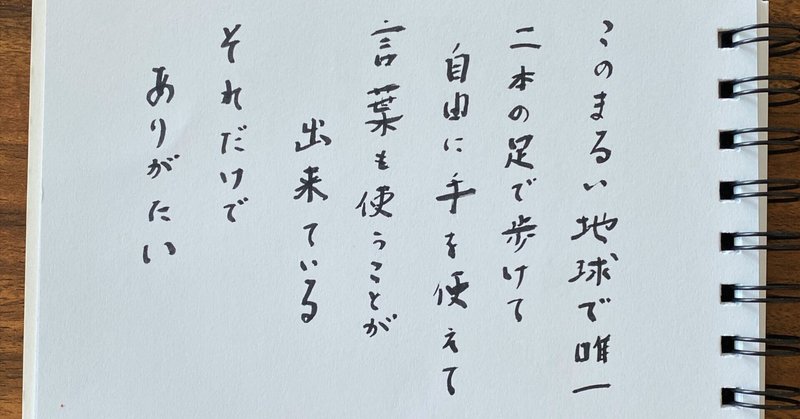 このまるい地球で唯一
二本の足で歩けて
自由に手を使えて
言葉も使うことが
出来ている
それだけで
ありがたい